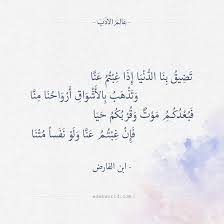 عالم الأدب
تَضِيقُ بِنَا الدُّنْيَا إِذَا غِبْتُمُ عَنَّا
وَتَذْهَبُ بِالأَشْوَاقِ أَرْوَاحُنَا مِنَّا
فَبُعْدُكُمُ مَوْتٌ وَقُرْبُكُمُ حَيَا
فَإِنْ غِبْتُمُ عَنَّا وَلَوْ نَفَساً مُتْنَا
- ابن الفارض -
adabworld.com